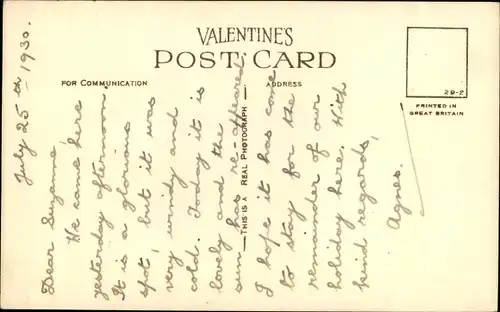 VALENTINE'S
POST CARD
FOR COMMUNICATION
ADDRESS
THIS IS A REAL PHOTOGRAPH
29-2
PRINTED IN
GREAT BRITAIN
July 25th 1930.
Dear Suzanne,
We came here
yesterday afternoon.
It is a glorious
spot, but it was
very windy and
cold. Today it is
lovely and the
sun has re-appeared.
I hope it has come
to stay for the
remainder of our
holiday here. With
kind regards,
Agnes.